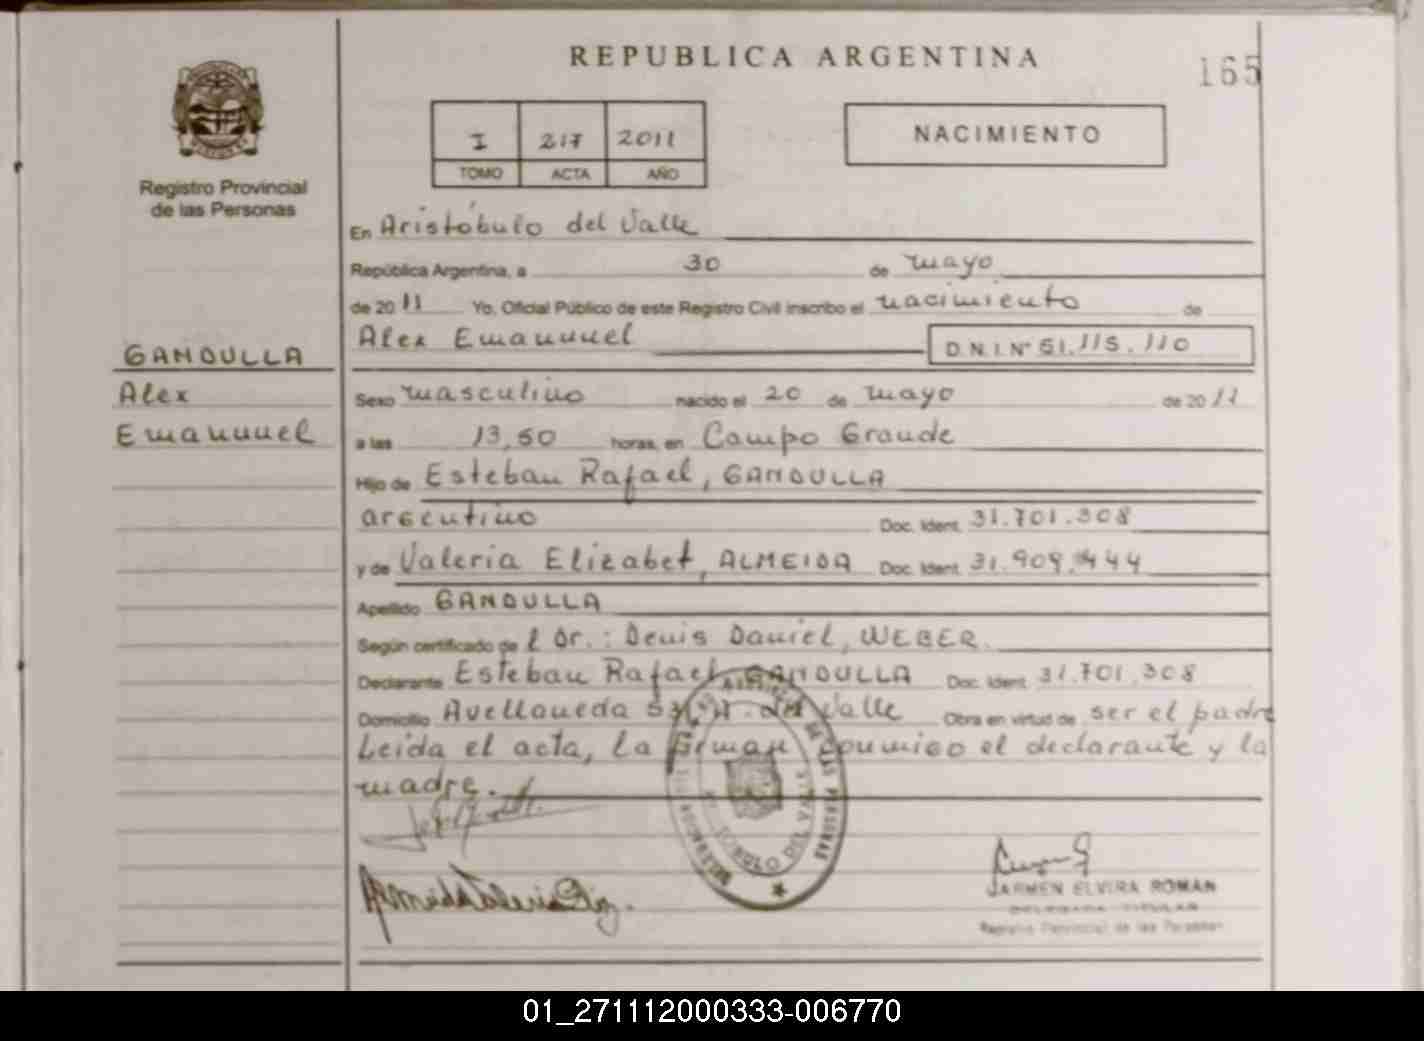 REPUBLICA ARGENTINA
165
I 217 2011
TOMO ACTA AÑO
NACIMIENTO
Registro Provincial
de las Personas
En Aristóbulo del Valle
República Argentina, a 30 de mayo
de 2011 Yo, Oficial Público de este Registro Civil inscribo el nacimiento de
Alex Emanuuel
D.N.I. Nº 51.115.110
GANDULLA
Alex
Emanuuel
Sexo masculino nacido el 20 de mayo de 2011
a las 13,50 horas, en Campo Grande
Hijo de Esteban Rafael, GANDULLA
argentino Doc. Ident. 31.701.308
y de Valeria Elizabet, ALMEIDA Doc. Ident. 31.909.444
Apellido GANDULLA
Según certificado de l Dr.: Denis Daniel, WEBER.
Declarante Esteban Rafael GANDULLA Doc. Ident. 31.701.308
Domicilio Avellaneda Valle Obra en virtud de ser el padre
Leída el acta, la firman conmigo el declarante y la
madre.
DE LAS PERSONAS
DEL VALLE
Almeida Valeria
CARMEN ELVIRA ROMAN
DELEGADA TITULAR
Registro Provincial de las Personas
01_271112000333-006770